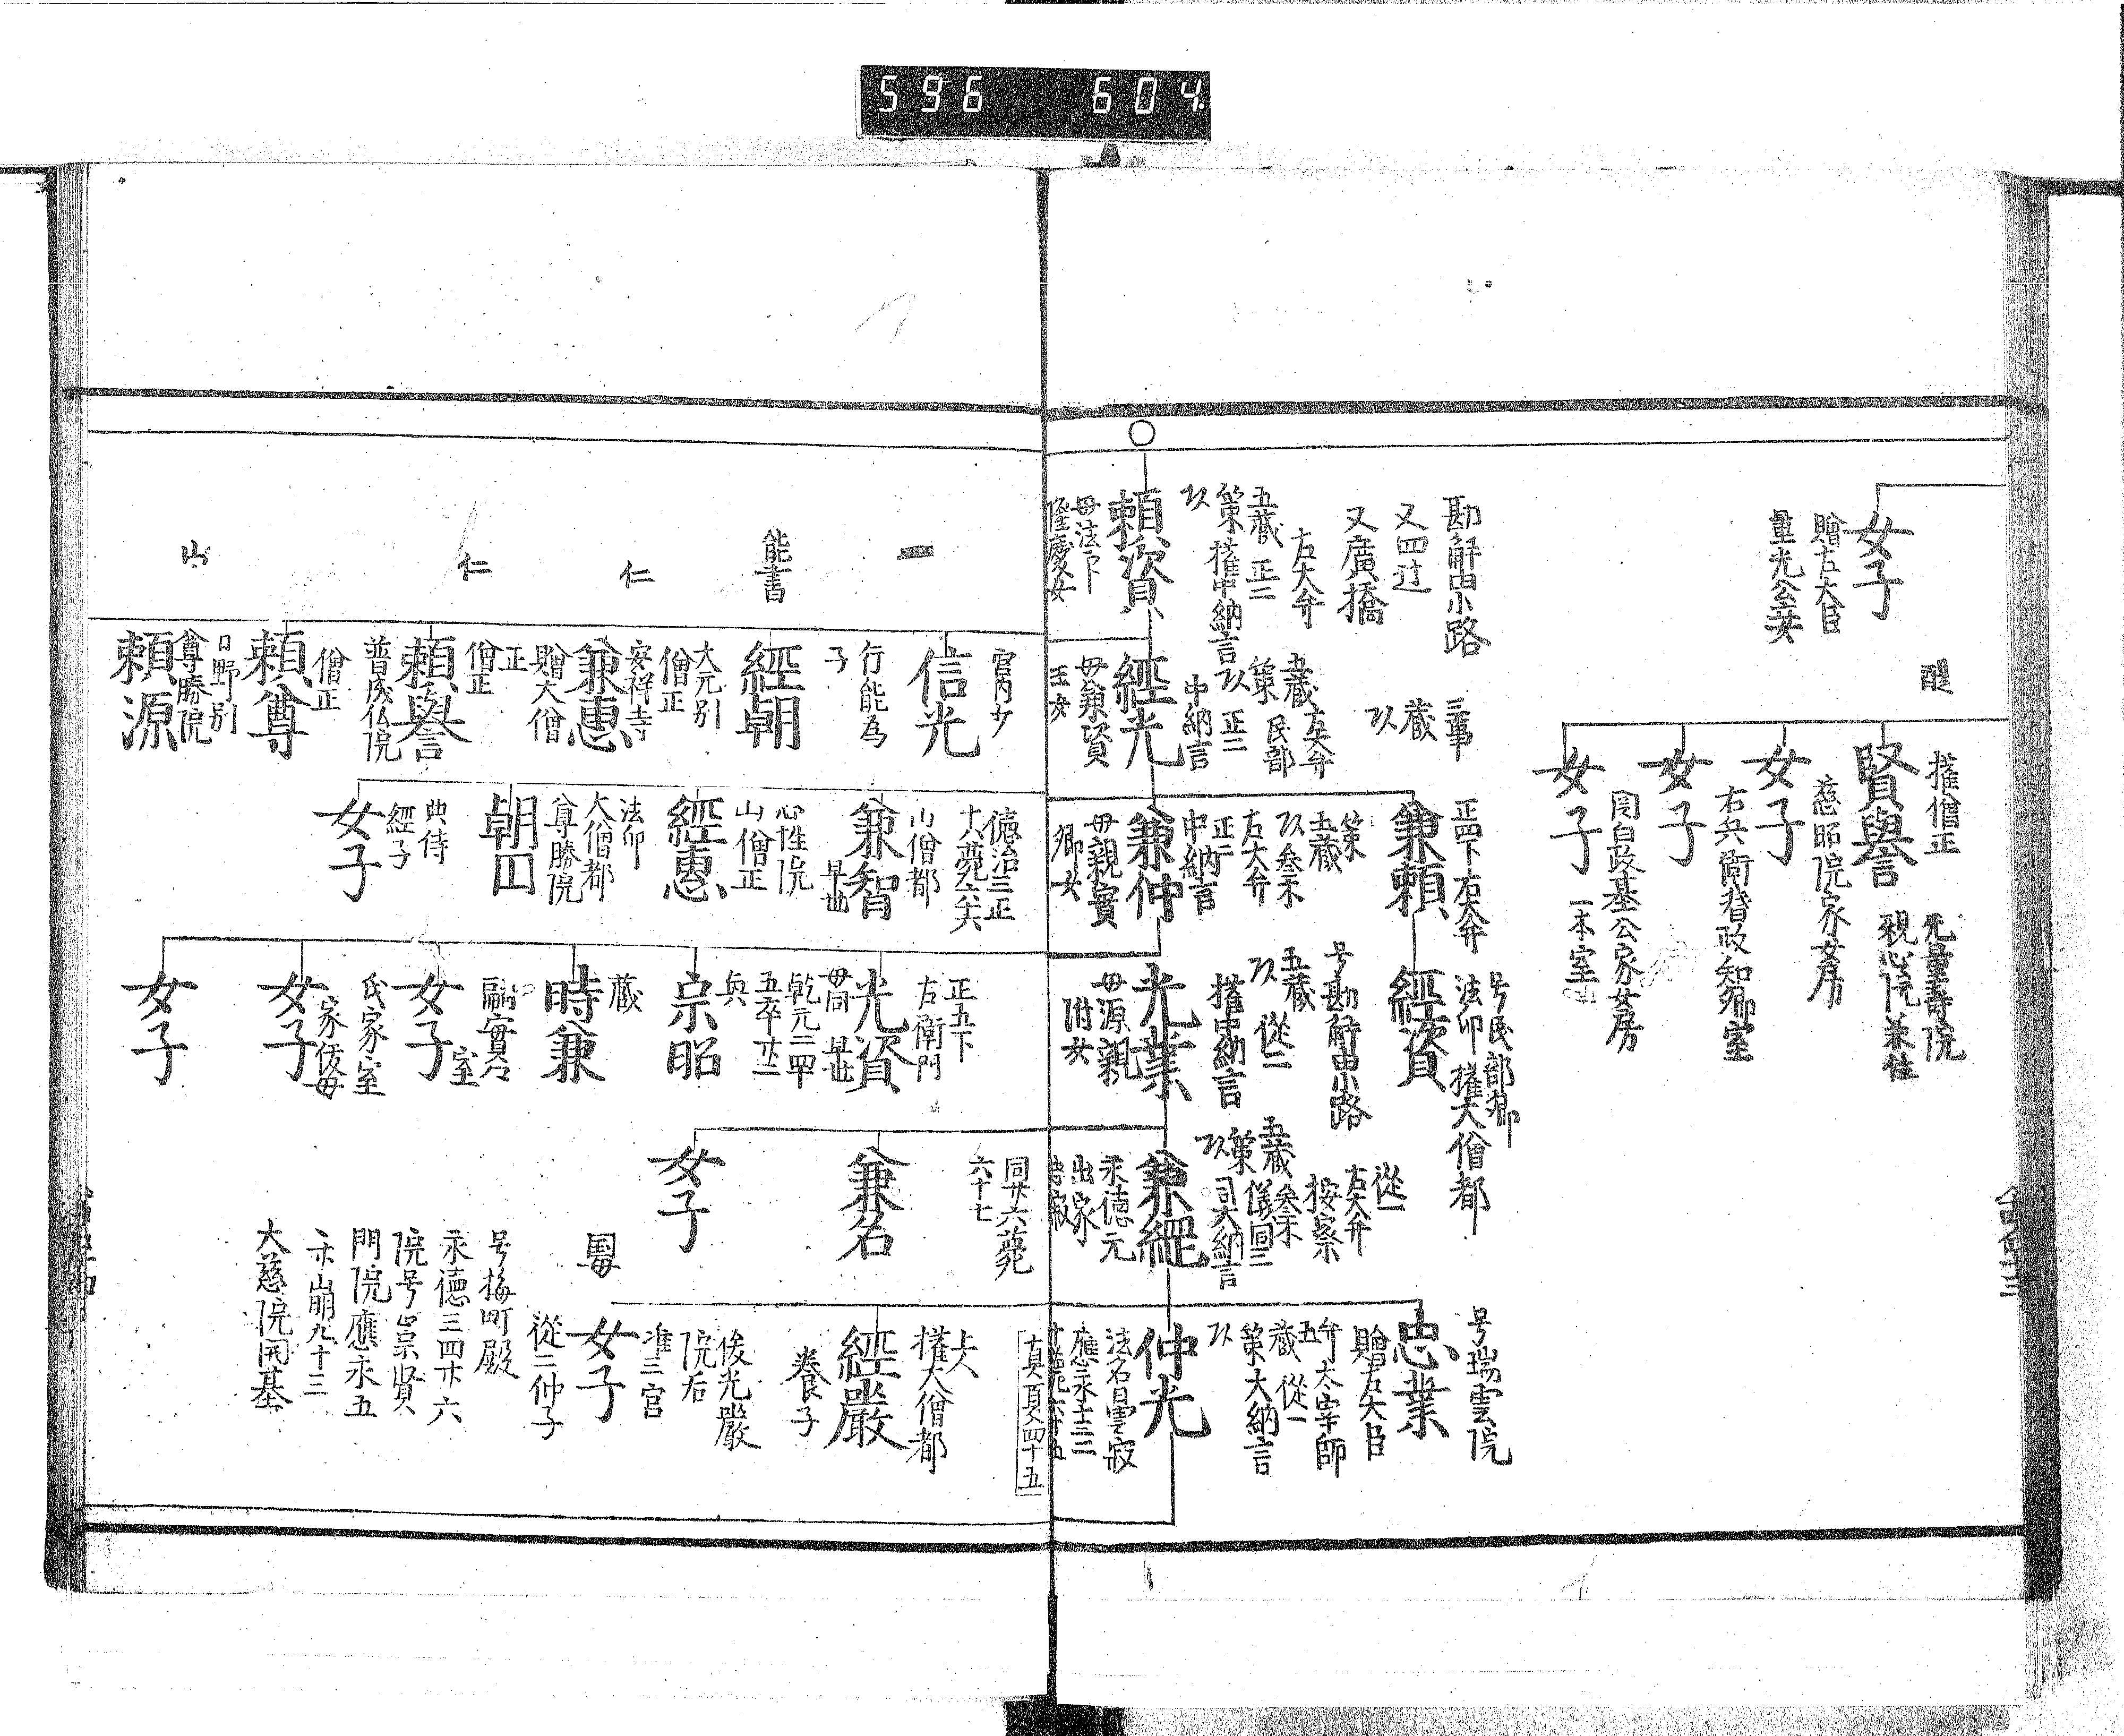 596 604
女子
贈左大臣
量光公女
醍
權僧正
賢譽
无量壽院
親心院兼住
女子
慈昭院家女房
女子
右兵衛督政知卿室
女子
関白政基公家女房
一本室
勘解由小路
又四辻
又廣橋
左大弁
五蔵 正二
策 權中納言
頼資
母法下
隆慶女
三事
蔵
五蔵 左大弁
策 民部
正二
中納言
經光
母兼資
王女
正四下右大弁
兼頼
策
五蔵
左大弁
正二
中納言
兼仲
母親實
卿女
号民部卿
法印 權大僧都
經資
号勘解由小路
五蔵
從二
權中納言
光業
母源親
附女
從一
左大弁
按察
五蔵
策 儀同三
同大納言
兼綱
永徳元
出家
号瑞雲院
忠業
贈左大臣
弁 太宰師
五蔵 從一
策大納言
仲光
法名曇寂
應永十三二
宮内少
信光
行能為
子
能書
經朝
大元別
僧正
安祥寺
仁
兼惠
贈大僧
正
僧正
仁
頼譽
普成仏院
僧正
頼尊
日野別
尊勝院
山
頼源
徳治三正
十六薨六十六
山僧都
兼智
早世
心性院
山僧正
經惠
法印
大僧都
尊勝院
朝円
典侍
經子
女子
正五下
左衛門
光資
母同 早世
乾元二四
五卒廿二
宗昭
兵
蔵
時兼
嗣實公
室
女子
氏家室
女子
家俊母
女子
同廿六薨
六十七
兼名
女子
上人
權大僧都
經嚴
養子
後光嚴
院右
准三宮
国母
女子
從二仲子
号梅町殿
永徳三四廿六
院号崇賢
門院應永五
大慈院開基
十真頁四十五